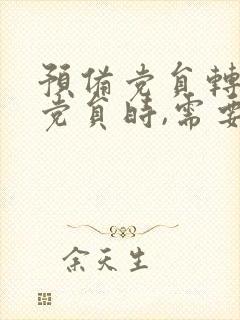 預備党員轉
党員時,需要
余天生